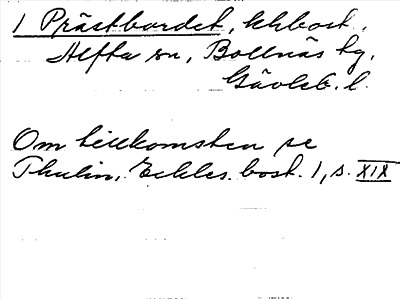 1 Prästbordet, khbost.,
Alfta sn, Bollnäs tg,
Gävleb. l.
Om tillkomsten se
Thulin, Eckles. bost. 1, s. XIX